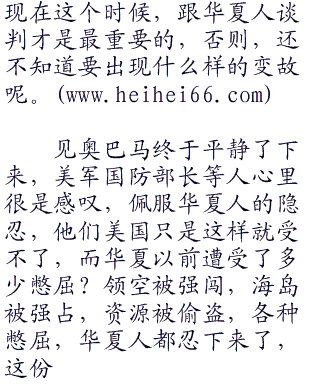 现在这个时候，跟华夏人谈
判才是最重要的，否则，还
不知道要出现什么样的变故
呢。(www.heihei66.com)
见奥巴马终于平静了下
来，美军国防部长等人心里
很是感叹，佩服华夏人的隐
忍，他们美国只是这样就受
不了，而华夏以前遭受了多
少憋屈？领空被强闯，海岛
被强占，资源被偷盗，各种
憋屈，华夏人都忍下来了，
这份